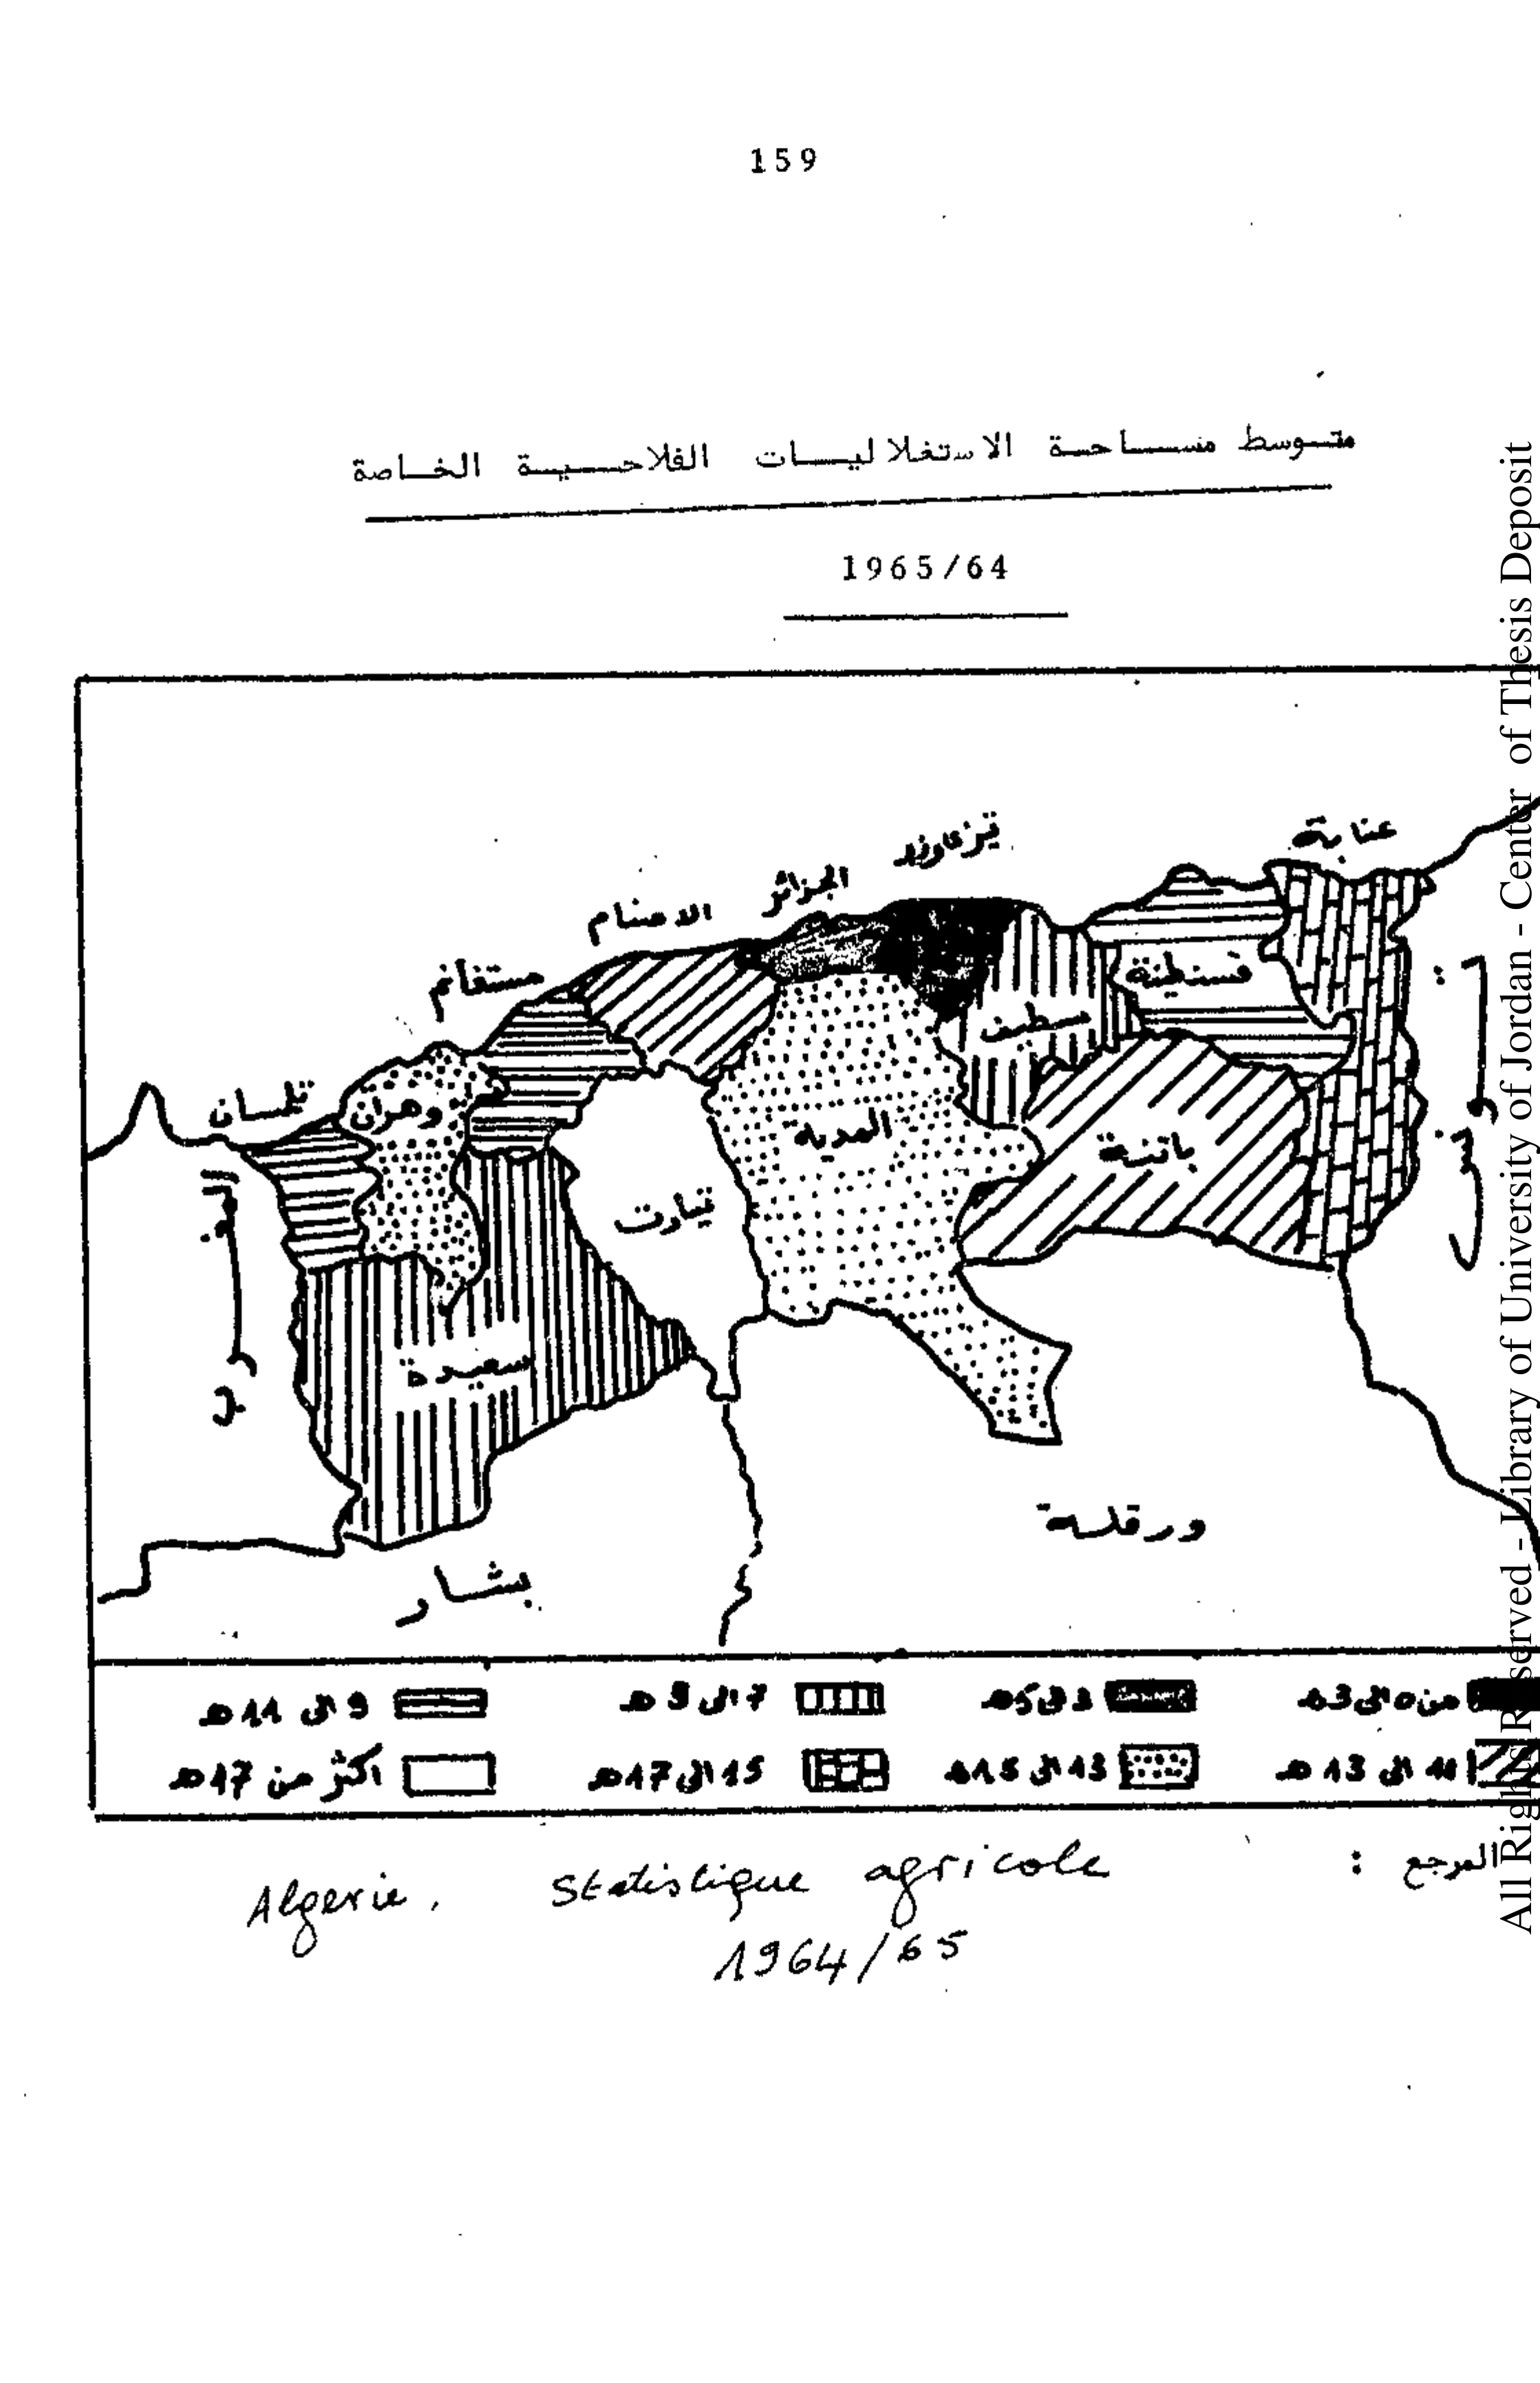 159
متوسط مساحة الاستغلاليات الفلاحية الخاصة
1965/64
عنابة
تيزي وزو
الجزائر
الاصنام
مستغانم
قسنطينة
سطيف
تلمسان
وهران
المدية
باتنة
تيارت
تونس
المغرب
سعيدة
ورقلة
بشار
من 0 الى 3 ه
3 الى 5 ه
7 الى 9 ه
9 الى 11 ه
11 الى 13 ه
13 الى 15 ه
15 الى 17 ه
اكثر من 17 ه
المرجع :
Algerie . Statistique agricole
1964/65
All Rights Reserved - Library of University of Jordan - Center of Thesis Deposit